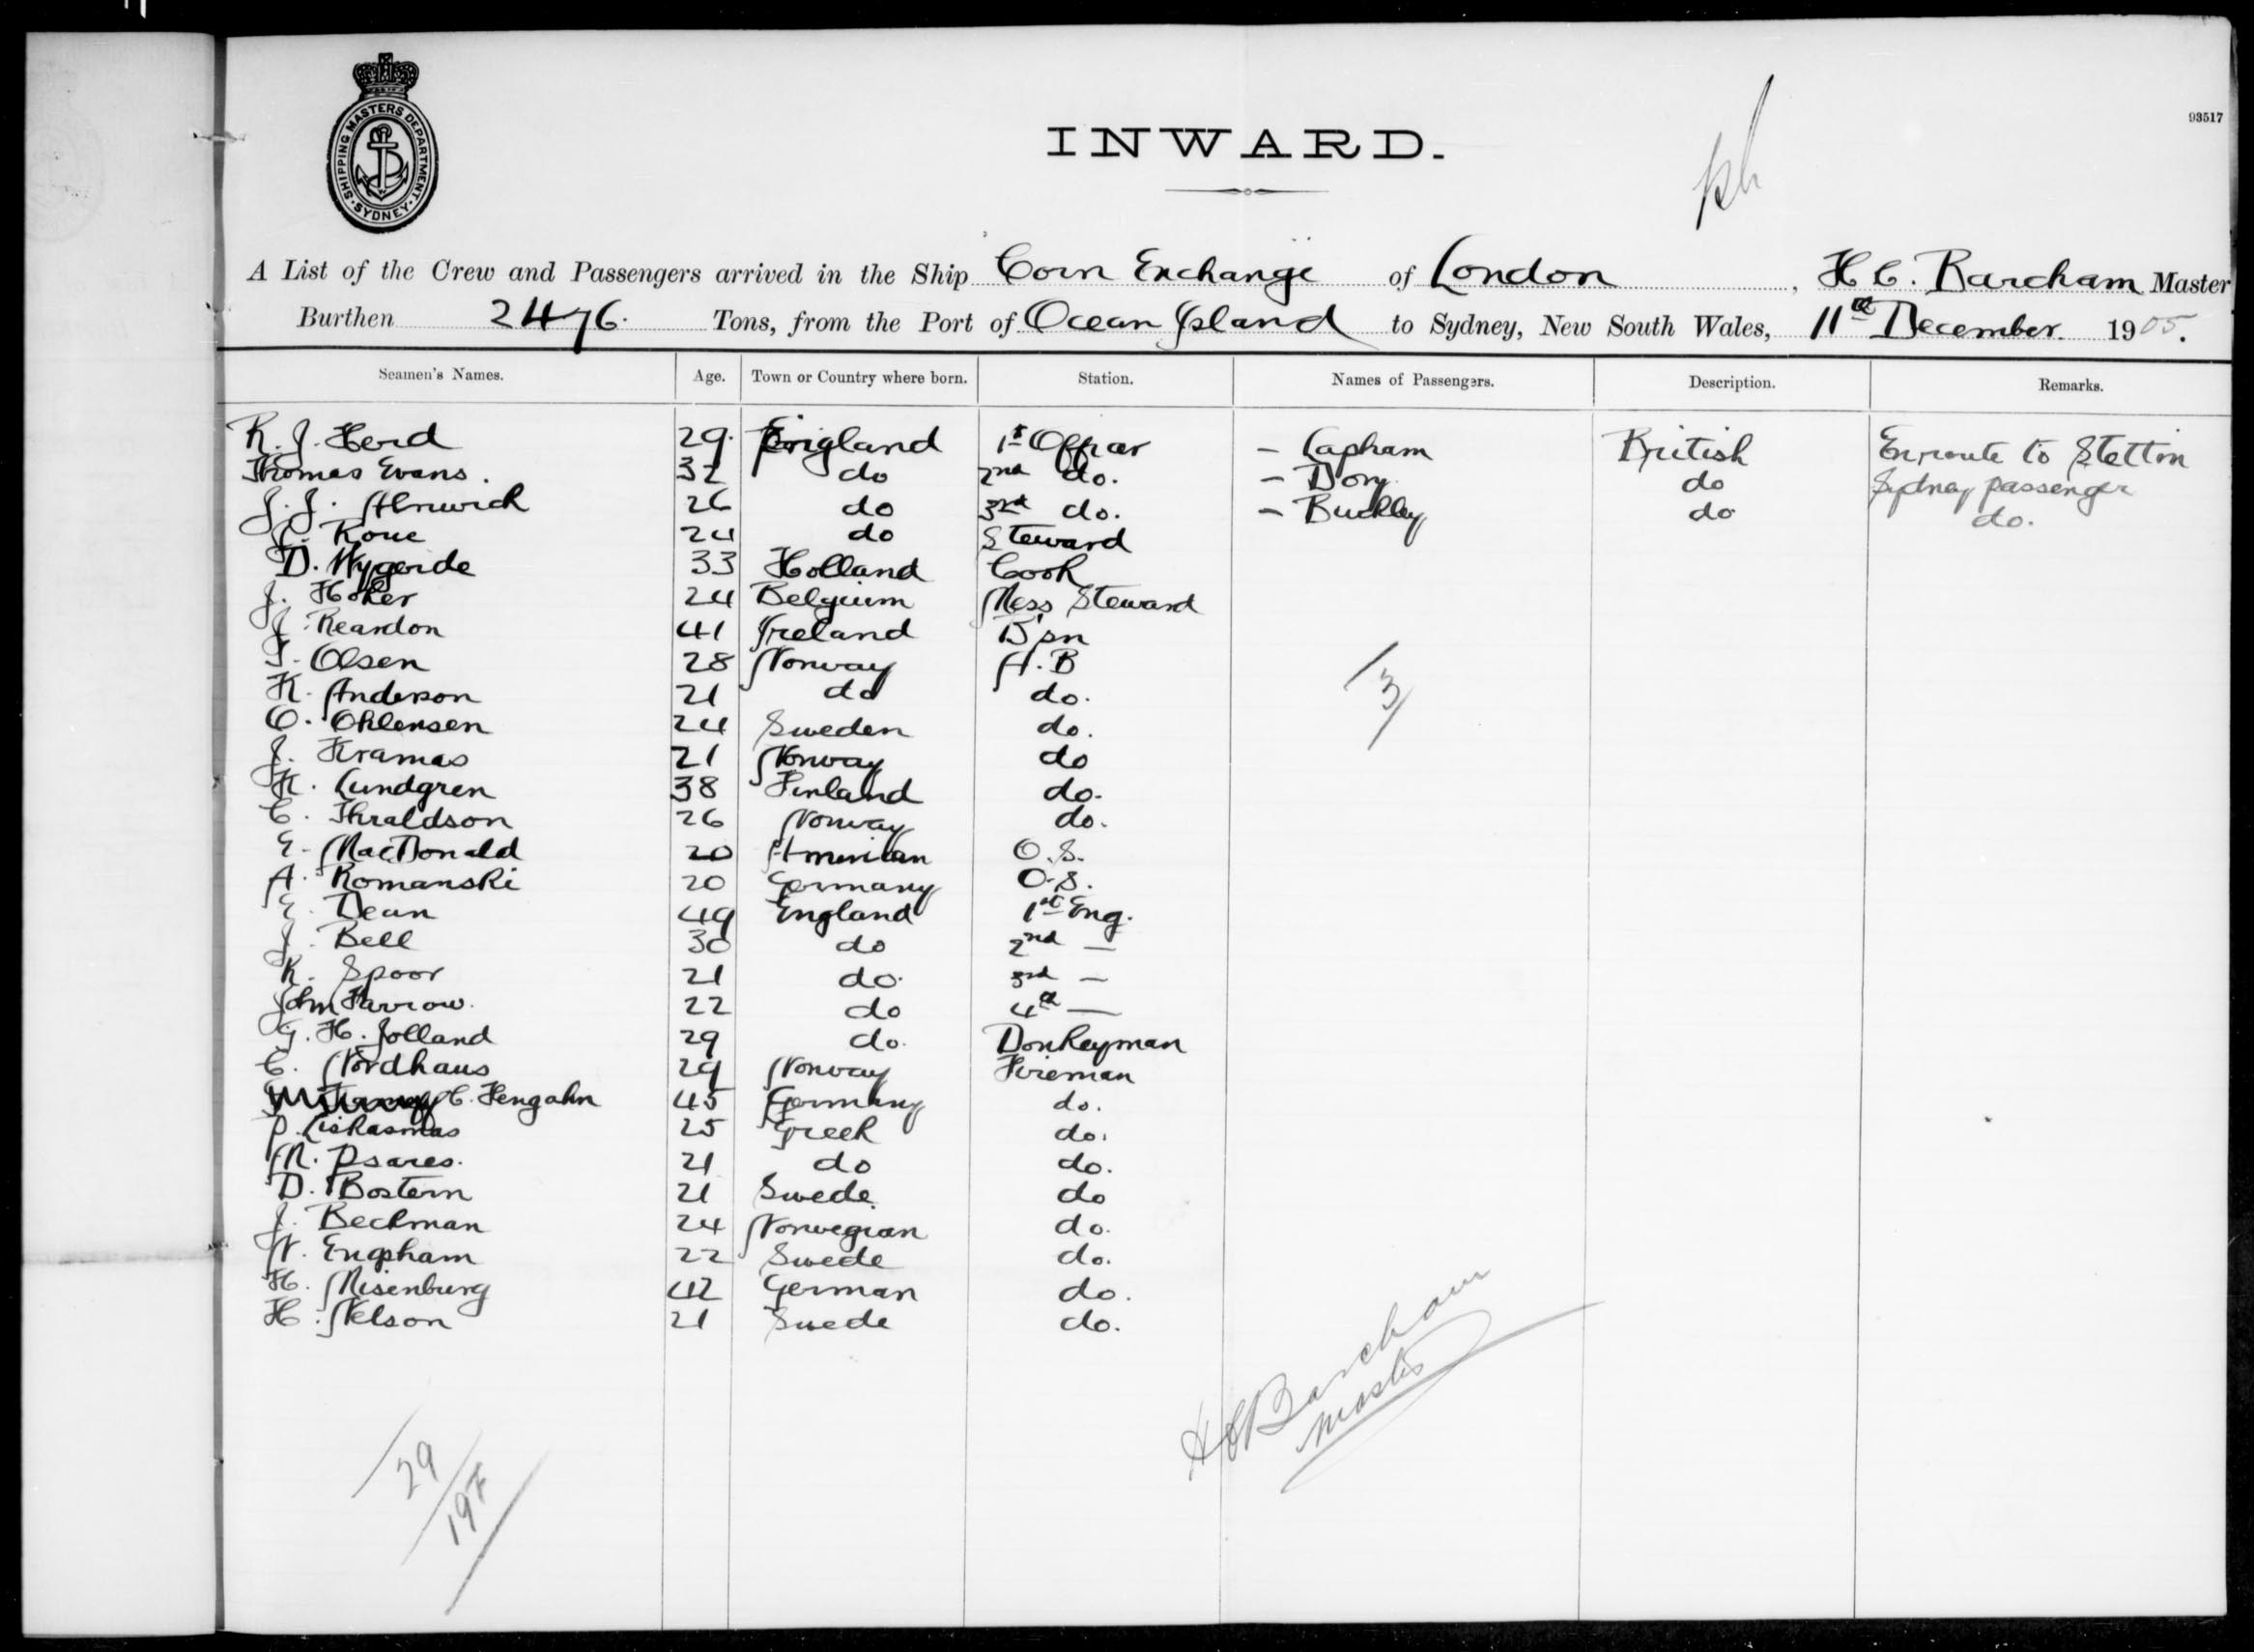 SHIPPING MASTERS DEPARTMENT · SYDNEY ·
93517
INWARD.
A List of the Crew and Passengers arrived in the Ship Corn Exchange of London, H C. Barcham Master
Burthen 2476. Tons, from the Port of Ocean Island to Sydney, New South Wales, 11th December. 1905.
Seamen's Names. Age. Town or Country where born. Station. Names of Passengers. Description. Remarks.
R. J. Herd 29. England 1st Officer – Lapham British Enroute to Stettin
Thomas Evans. 32 do 2nd do. – Dory do Sydney passenger
J. J. Alnwick 26 do 3rd do. – Buckley do do.
Rowe 24 do Steward
D. Wygerde 33 Holland Cook
J. Hoker 24 Belgium Mess Steward
J. Reardon 41 Ireland B'sn
T. Olsen 28 Norway A. B
K. Anderson 21 do do.
O. Ohlensen 24 Sweden do.
J. Kramas 21 Norway do
K. Lundgren 38 Finland do.
C. Haraldson 26 Norway do.
E. MacDonald 20 American O.S.
A. Romanski 20 Germany O.S.
E. Dean 49 England 1st Eng.
J. Bell 30 do 2nd —
R. Spoor 21 do. 3rd —
John Farrow. 22 do 4th —
G. H. Jolland 29 do. Donkeyman
C. Nordhaus 29 Norway Fireman
C. Hengahn 45 Germany do.
P. Liskasmas 25 Greek do.
M. Psares. 21 do do.
D. Bostern 21 Swede. do
J. Beckman 24 Norwegian do.
N. Engsham 22 Swede do.
H. Misenburg 42 German do.
H. Nelson 21 Swede do.
3
H C Barcham
Master
29
197